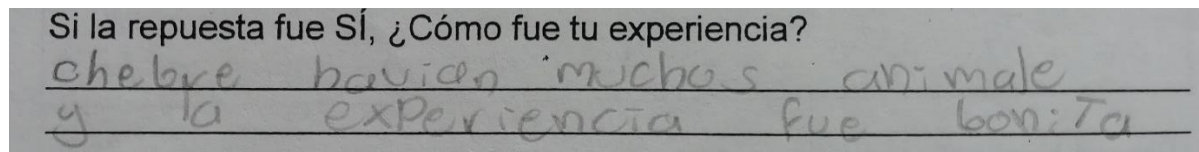 Si la repuesta fue SÍ, ¿Cómo fue tu experiencia?
chebre havian muchos animale
y la experiencia fue boniTa